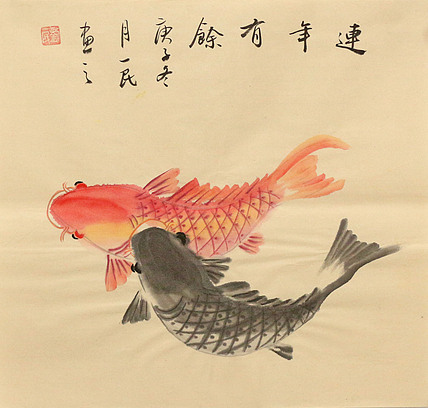 連年有餘
庚子冬
月一民
畫之